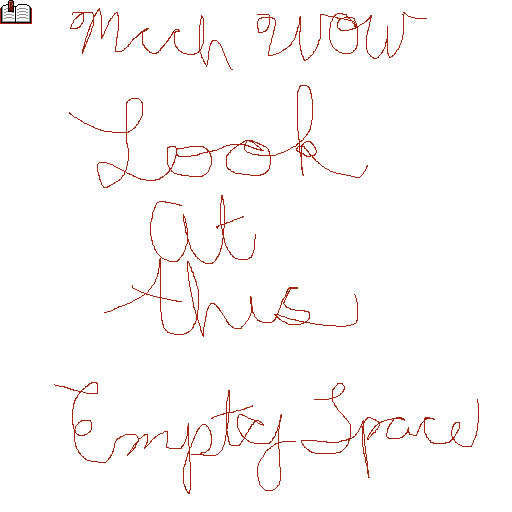 Much wow
Look
at
this
Empty Space